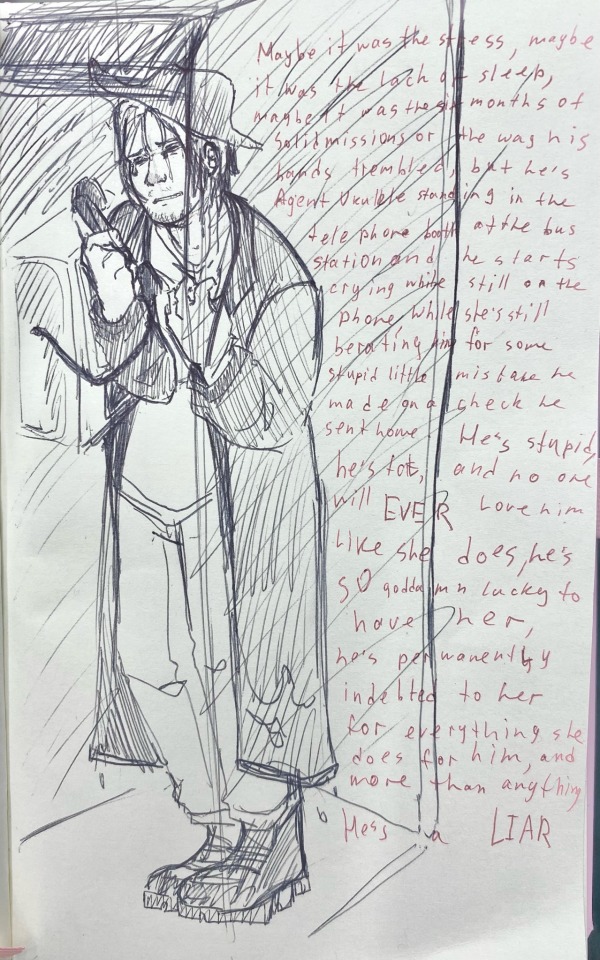 Maybe it was the stress, maybe
it was the lack of sleep,
maybe it was the six months of
Solid missions or the way his
hands trembled, but he's
Agent Ukulele standing in the
telephone booth at the bus
station and he starts
crying while still on the
phone, while she's still
berating him for some
stupid little mistake he
made on a check he
sent home. He's stupid,
he's fat, and no one
will EVER love him
like she does, he's
so goddamn lucky to
have her,
he's permanently
indebted to her
for everything she
does for him, and
more than anything
He's a LIAR